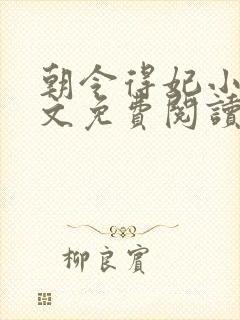 朝令得妃小
文免費閱讀
柳良賓